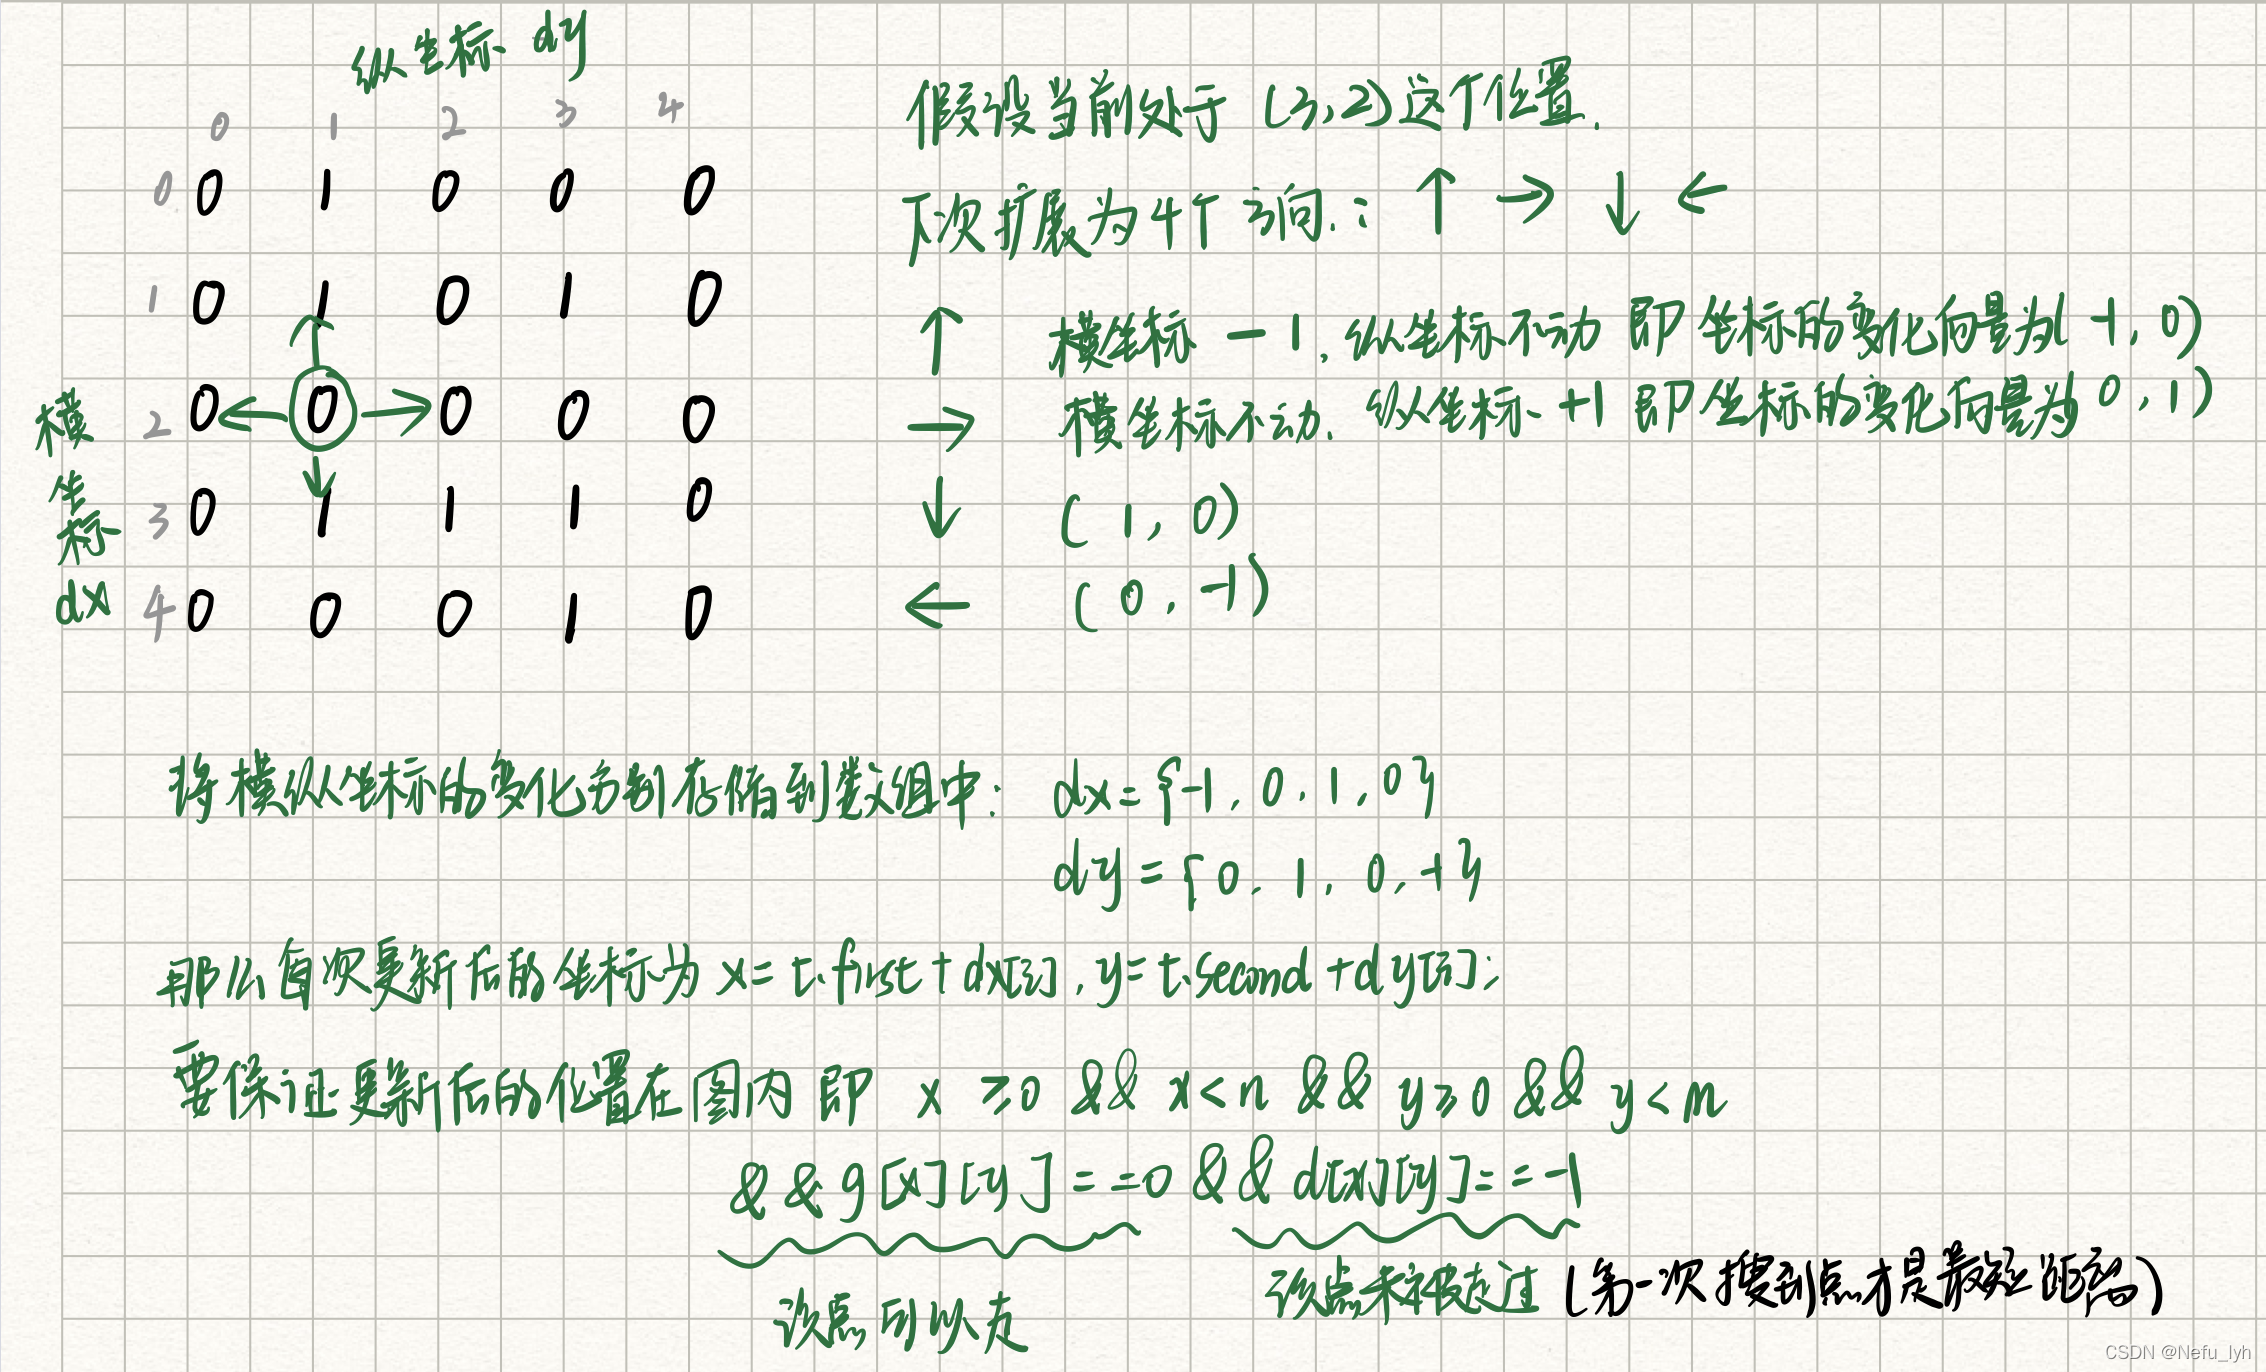 纵坐标 dy
0 1 2 3 4
0 0 1 0 0 0
1 0 1 0 1 0
2 0 0 0 0 0
3 0 1 1 1 0
4 0 0 0 1 0
横坐标 dx
假设当前处于 (3,2)这个位置.
下次扩展为4个方向.: ↑ → ↓ ←
↑ 横坐标 -1, 纵坐标不动 即 坐标的变化向量为(-1, 0)
→ 横坐标不动. 纵坐标 +1 即 坐标的变化向量为 0, 1)
↓ ( 1, 0)
← ( 0, -1)
将横纵坐标的变化分别存储到数组中: dx={-1, 0, 1, 0}
dy={0, 1, 0, -1}
那么首次更新后的坐标为 x= t.first + dx[i], y= t.second + dy[i];
要保证更新后的位置在图内 即 x ≥0 && x<n && y≥0 && y<m
&& g[x][y]==0 && d[x][y]==-1
该点可以走
该点未被走过 (第一次搜到点才是最短距离)
CSDN @Nefu_lyh